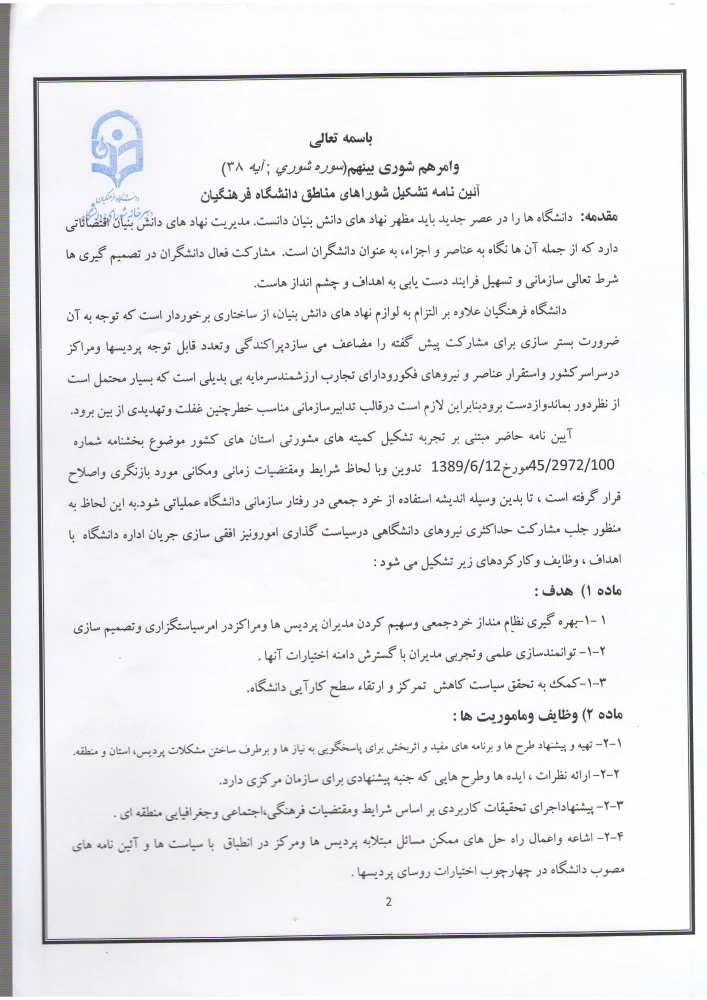 باسمه تعالی
وامرهم شوری بینهم(سوره شوري ; آیه ۳۸)
آئین نامه تشکیل شوراهای مناطق دانشگاه فرهنگیان
دانشگاه فرهنگیان
دبیرخانه شورای دانشگاه
مقدمه: دانشگاه ها را در عصر جدید باید مظهر نهاد های دانش بنیان دانست. مدیریت نهاد های دانش بنیان اقتضائاتی
دارد که از جمله آن ها نگاه به عناصر و اجزاء، به عنوان دانشگران است. مشارکت فعال دانشگران در تصمیم گیری ها
شرط تعالی سازمانی و تسهیل فرایند دست یابی به اهداف و چشم انداز هاست.
دانشگاه فرهنگیان علاوه بر التزام به لوازم نهاد های دانش بنیان، از ساختاری برخوردار است که توجه به آن
ضرورت بستر سازی برای مشارکت پیش گفته را مضاعف می سازدپراکندگی وتعدد قابل توجه پردیسها ومراکز
درسراسرکشور واستقرار عناصر و نیروهای فکورودارای تجارب ارزشمندسرمایه بی بدیلی است که بسیار محتمل است
از نظردور بماندوازدست برودبنابراین لازم است درقالب تدابیرسازمانی مناسب خطرچنین غفلت وتهدیدی از بین برود.
آیین نامه حاضر مبتنی بر تجربه تشکیل کمیته های مشورتی استان های کشور موضوع بخشنامه شماره
45/2972/100مورخ1389/6/12 تدوین وبا لحاظ شرایط ومقتضیات زمانی ومکانی مورد بازنگری واصلاح
قرار گرفته است ، تا بدین وسیله اندیشه استفاده از خرد جمعی در رفتار سازمانی دانشگاه عملیاتی شود.به این لحاظ به
منظور جلب مشارکت حداکثری نیروهای دانشگاهی درسیاست گذاری امورونیز افقی سازی جریان اداره دانشگاه با
اهداف ، وظایف وکارکردهای زیر تشکیل می شود :
ماده ۱) هدف :
۱-۱-بهره گیری نظام منداز خردجمعی وسهیم کردن مدیران پردیس ها ومراکزدر امرسیاستگزاری وتصمیم سازی
۱-۲- توانمندسازی علمی وتجربی مدیران با گسترش دامنه اختیارات آنها .
۱-۳-کمک به تحقق سیاست کاهش تمرکز و ارتقاء سطح کارآیی دانشگاه.
ماده ۲) وظایف وماموریت ها :
۲-۱- تهیه و پیشنهاد طرح ها و برنامه های مفید و اثربخش برای پاسخگویی به نیاز ها و برطرف ساختن مشکلات پردیس، استان و منطقه.
۲-۲- ارائه نظرات ، ایده ها وطرح هایی که جنبه پیشنهادی برای سازمان مرکزی دارد.
۲-۳- پیشنهاداجرای تحقیقات کاربردی بر اساس شرایط ومقتضیات فرهنگی،اجتماعی وجغرافیایی منطقه ای .
۲-۴- اشاعه واعمال راه حل های ممکن مسائل مبتلابه پردیس ها ومرکز در انطباق با سیاست ها و آئین نامه های
مصوب دانشگاه در چهارچوب اختیارات روسای پردیسها .
2